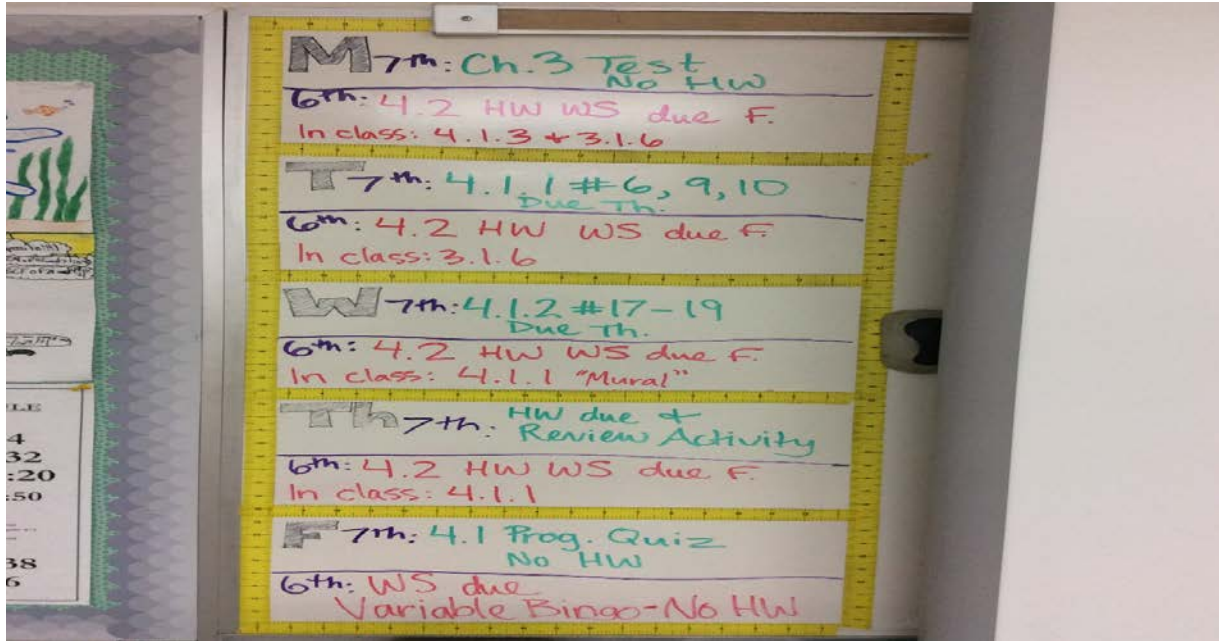 M 7th: Ch. 3 Test
No HW
6th: 4.2 HW WS due F.
In class: 4.1.3 + 3.1.6
T 7th: 4.1.1 #6, 9, 10
Due Th.
6th: 4.2 HW WS due F.
In class: 3.1.6
W 7th: 4.1.2 #17-19
Due Th.
6th: 4.2 HW WS due F.
In class: 4.1.1 "Mural"
Th 7th: HW due +
Review Activity
6th: 4.2 HW WS due F.
In class: 4.1.1
F 7th: 4.1 Prog. Quiz
No HW
6th: WS due
Variable Bingo-No HW